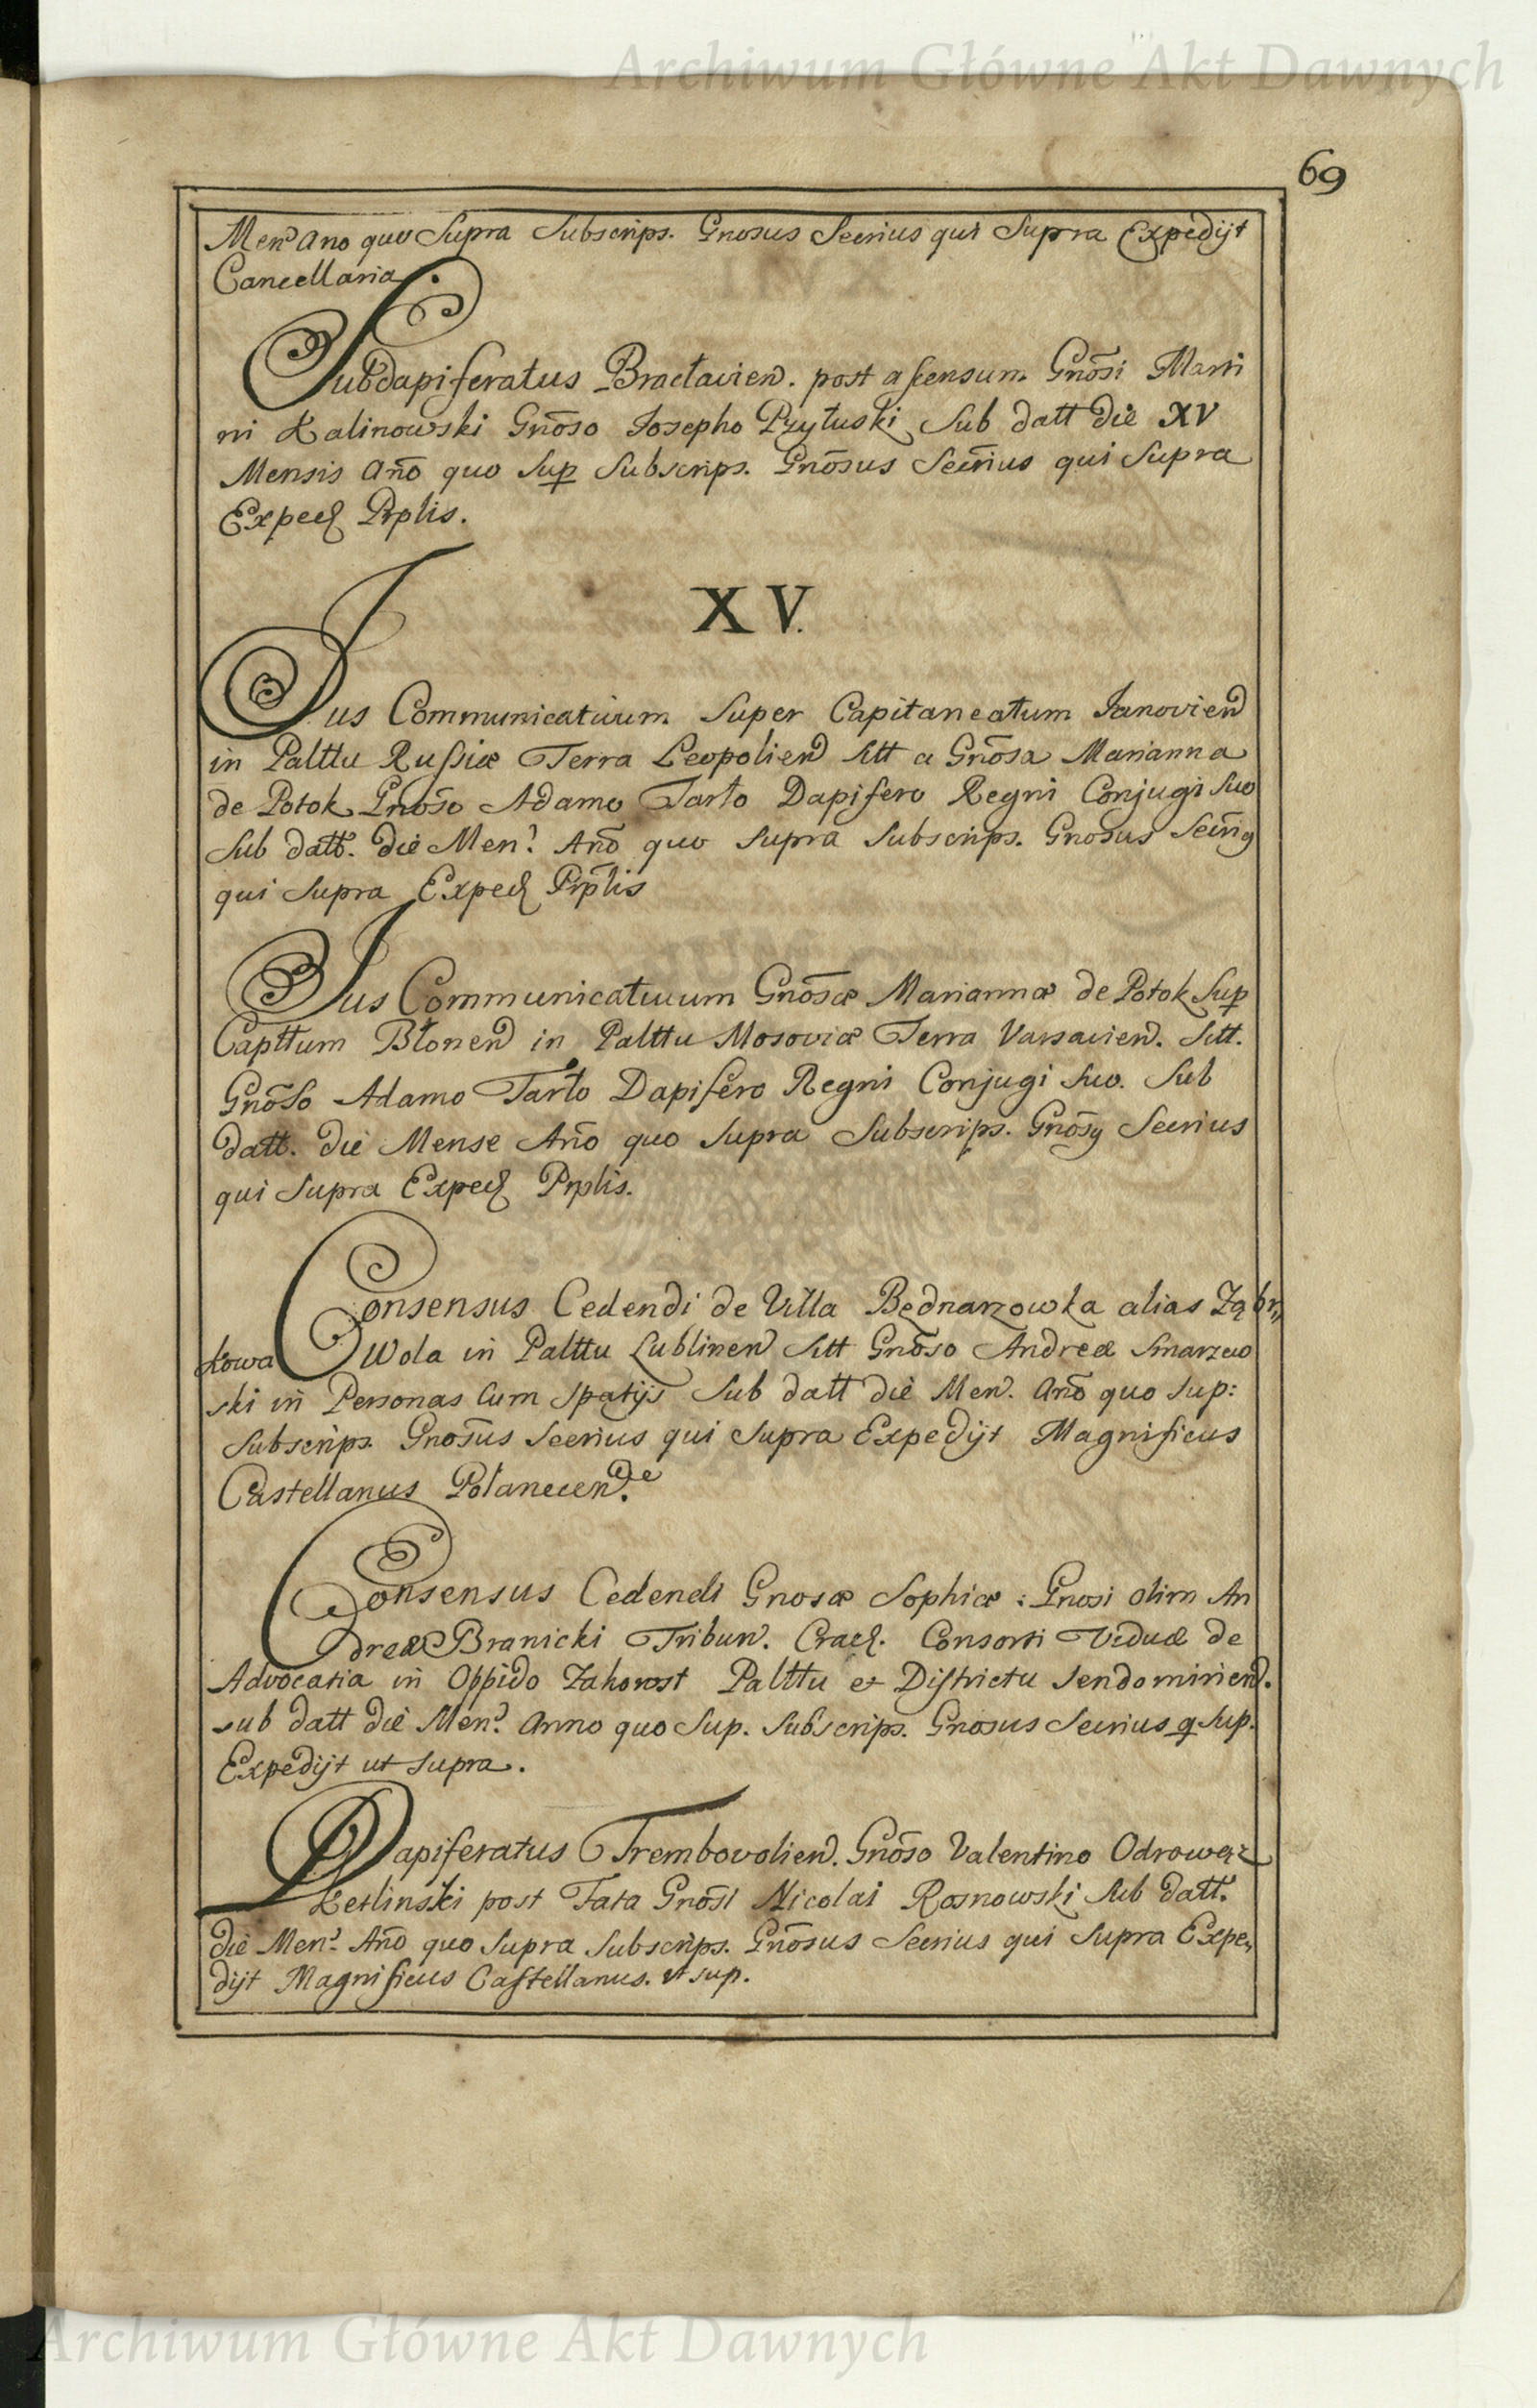 Archiwum Główne Akt Dawnych
69
Men? Ano quo Supra Subscrips. Gnosus Secrius qui Supra Expedijt
Cancellaria.
Subdapiferatus Bracłavien. post ascensum Gnōsi Marti
ni Kalinowski Gnōso Josepho Przyłuski Sub datt die XV
Mensis Anō quo Sup Subscrips. Gnōsus Secrius qui Supra
Exped Prplis.
XV.
Jus Communicativum Super Capitaneatum Janovien
in Palttu Russiæ Terra Leopolien Sitt a Gnōsa Marianna
de Potok Gnōso Adamo Tarło Dapifero Regni Conjugi Suo
Sub datt. die Men? Anō quo Supra Subscrips. Gnosus Secrig
qui Supra Exped Prplis
Jus Communicativum Gnōsæ Mariannæ de Potok Sup
Capttum Błonen in Palttu Mosoviæ Terra Varsavien. Sitt.
Gnōso Adamo Tarło Dapifero Regni Conjugi Suo. Sub
datt. die Mense Anō quo Supra Subscrips. Gnōsg Secrius
qui Supra Exped Prplis.
Consensus Cedendi de Villa Będnarzowka alias Ząbr„
kowa Wola in Palttu Lublinen Sitt Gnōso Andreæ Smarzew
ski in Personas Cum Spatijs Sub datt die Men. Anō quo Sup:
Subscrips. Gnosus Secrius qui Supra Expedijt Magnificus
Castellanus Połanecen.
Consensus Cedendi Gnosæ Sophiæ : Gnosi olim An
dreæ Branicki Tribun. Crac. Consorti Viduæ de
Advocatia in Oppido Zakorost Palttu et Districtu Sendomirien.
sub datt die Men? Anno quo Sup. Subscrips. Gnosus Secrius q Sup.
Expedijt ut Supra.
Dapiferatus Trembovolien. Gnōso Valentino Odrowąz
Ketlinski post Fata Gnōsi Nicolai Rosnowski Sub datt.
die Men? Anō quo Supra Subscrips. Gnōsus Secrius qui Supra Expe„
dijt Magnificus Castellanus. ut sup.
Archiwum Główne Akt Dawnych